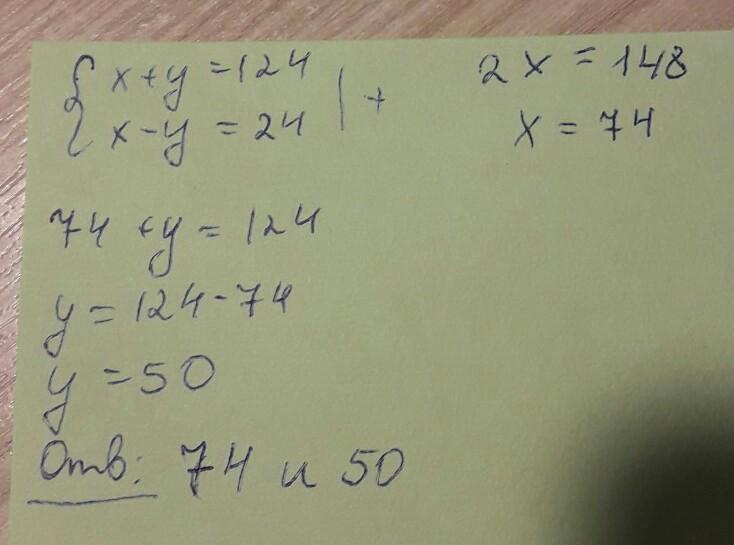 { x+y=124 | +
x-y=24
2x=148
x=74
74+y=124
y=124-74
y=50
Отв: 74 и 50